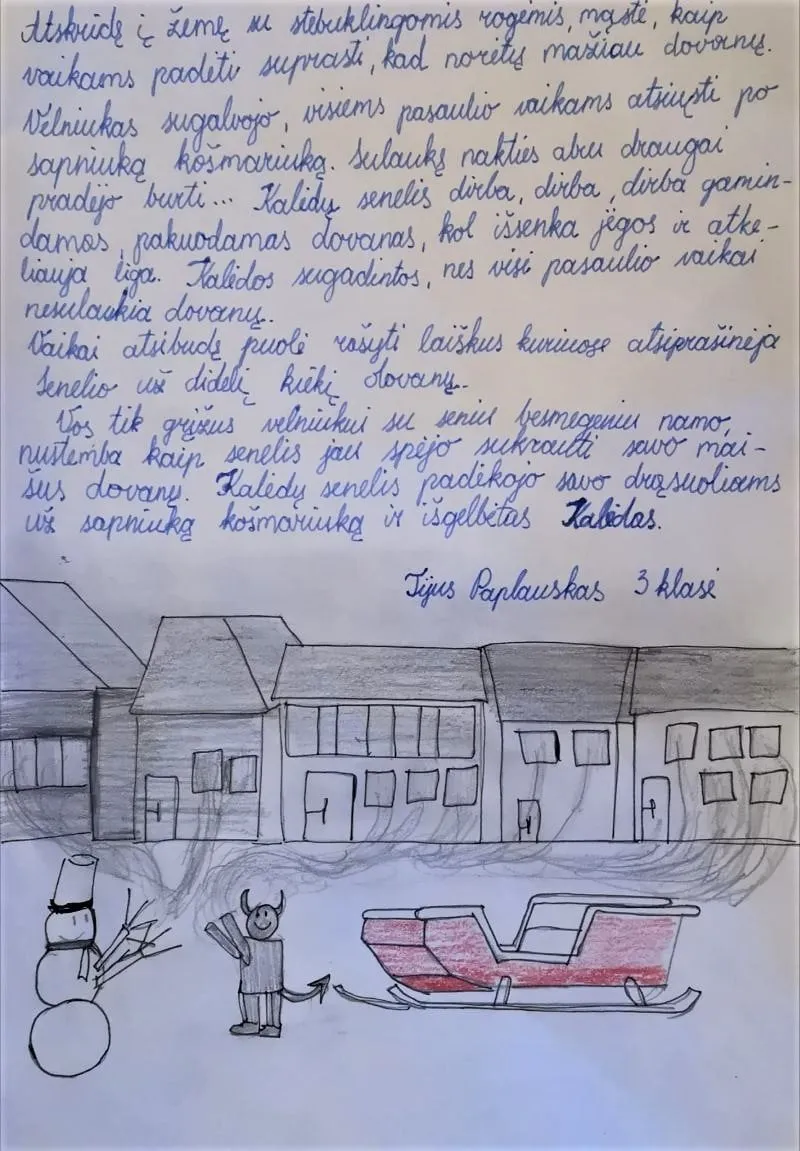 Atskridę į Žemę su stebuklingomis rogėmis, mąstė, kaip
vaikams padėti suprasti, kad norėtų mažiau dovanų.
Velniukas sugalvojo, visiems pasaulio vaikams atsiųsti po
sapniuką košmariuką. Sulaukę nakties abu draugai
pradėjo burti... Kalėdų senelis dirba, dirba, dirba gamin-
damas, pakuodamas dovanas, kol išsenka jėgos ir atke-
liauja liga. Kalėdos sugadintos, nes visi pasaulio vaikai
nesulaukia dovanų.
Vaikai atsibudę puolė rašyti laiškus kuriuose atsiprašinėja
Senelio už didelį kiekį dovanų.
Vos tik grįžus velniukui su seniu besmegeniu namo,
nustemba kaip senelis jau spėjo sukrauti savo mai-
šus dovanų. Kalėdų senelis padėkojo savo drąsuoliams
už sapniuką košmariuką ir išgelbėtas Kalėdas.
Tijus Paplauskas 3 klasė